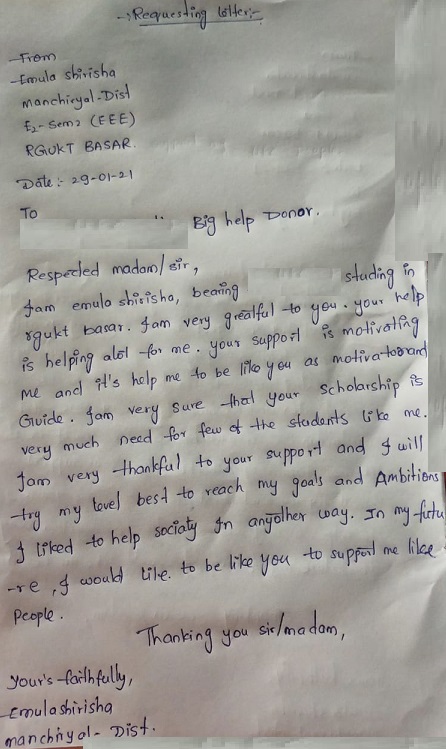 →Requesting letter:-
From
Emula shirisha
manchiryal-Dist
E2-Sem2 (EEE)
RGUKT BASAR.
Date:- 29-01-21
To
Big help Donor.
Respected madam/sir,
Iam emula shirisha, bearing studing in
rgukt basar. Iam very greatful to you. your help
is helping alot for me. your support is motivating
me and it's help me to be like you as motivatoorand
Guide. Iam very sure that your scholarship is
very much need for few of the students like me.
Iam very thankful to your support and I will
try my level best to reach my goals and Ambitions
I liked to help sociaty In anyother way. In my futu
-re, I would like to be like you to support me like
People.
Thanking you sir/madam,
your's faithfully,
Emulashirisha
manchiryal- Dist.